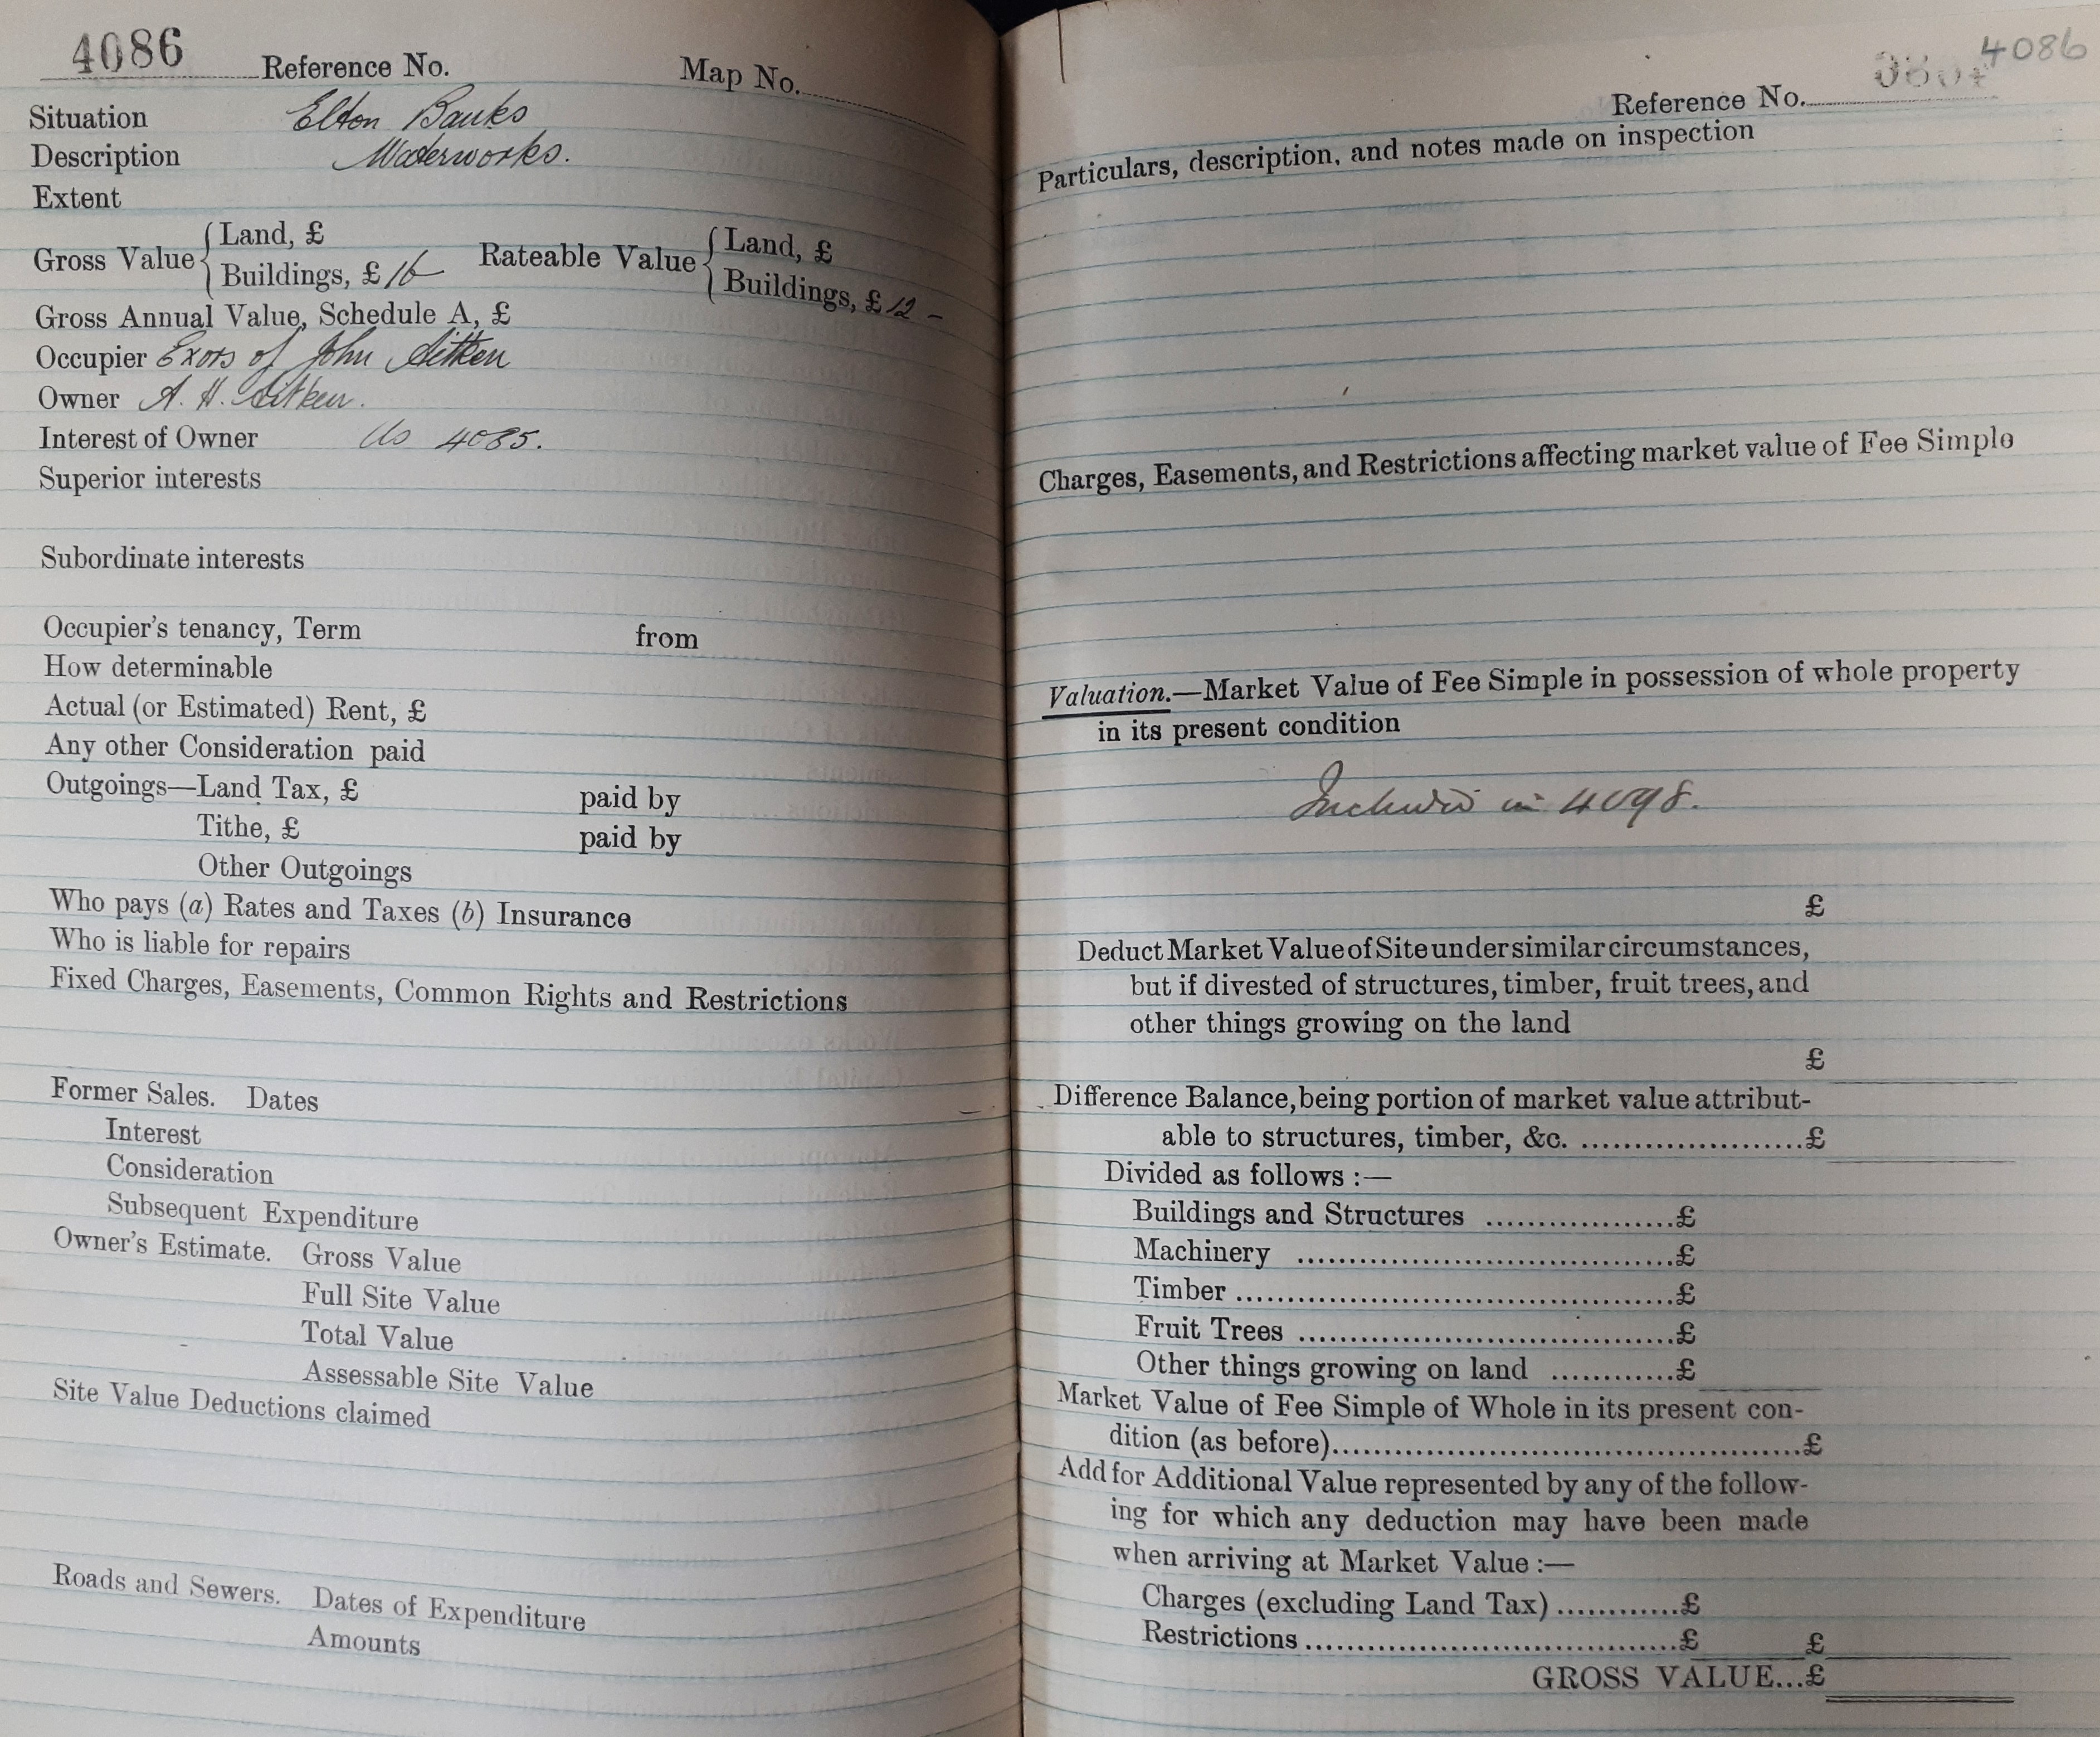 4086 Reference No. Map No.
Situation Elton Banks
Description Waterworks.
Extent
Gross Value { Land, £
Buildings, £ 16 –
Rateable Value { Land, £
Buildings, £ 12 –
Gross Annual Value, Schedule A, £
Occupier Exors of John Aitken
Owner A. H. Aitken.
Interest of Owner As 4085.
Superior interests
Subordinate interests
Occupier's tenancy, Term from
How determinable
Actual (or Estimated) Rent, £
Any other Consideration paid
Outgoings—Land Tax, £ paid by
Tithe, £ paid by
Other Outgoings
Who pays (a) Rates and Taxes (b) Insurance
Who is liable for repairs
Fixed Charges, Easements, Common Rights and Restrictions
Former Sales. Dates
Interest
Consideration
Subsequent Expenditure
Owner's Estimate. Gross Value
Full Site Value
Total Value
Assessable Site Value
Site Value Deductions claimed
Roads and Sewers. Dates of Expenditure
Amounts
4086
Reference No.
Particulars, description, and notes made on inspection
Charges, Easements, and Restrictions affecting market value of Fee Simple
Valuation.—Market Value of Fee Simple in possession of whole property
in its present condition
Included in 4098.
£
Deduct Market Value of Site under similar circumstances,
but if divested of structures, timber, fruit trees, and
other things growing on the land
£
Difference Balance, being portion of market value attribut-
able to structures, timber, &c. ......................£
Divided as follows :—
Buildings and Structures ...................£
Machinery ......................................£
Timber ............................................£
Fruit Trees ......................................£
Other things growing on land ............£
Market Value of Fee Simple of Whole in its present con-
dition (as before)................................................£
Add for Additional Value represented by any of the follow-
ing for which any deduction may have been made
when arriving at Market Value :—
Charges (excluding Land Tax) ............£
Restrictions ......................................£ £
GROSS VALUE...£